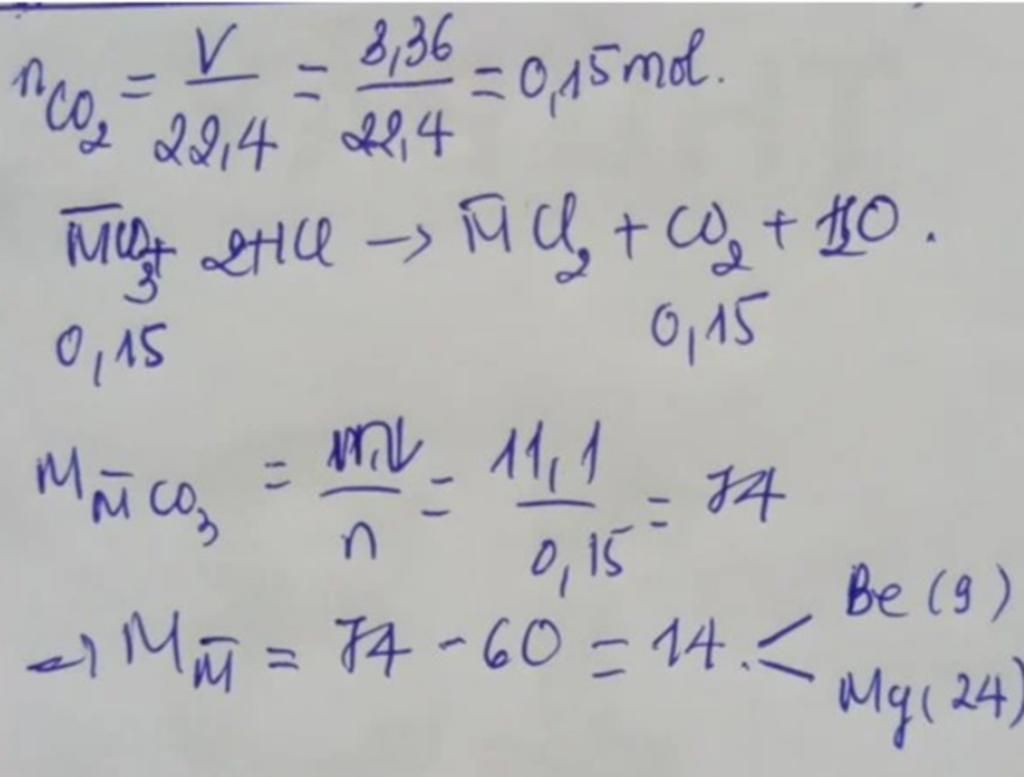 nCO₂ = V/22,4 = 3,36/22,4 = 0,15 mol.
M̄CO₃ + 2HCl → M̄Cl₂ + CO₂ + H₂O.
0,15 0,15
M M̄CO₃ = /n = 11,1/0,15 = 74
→ M M̄ = 74 - 60 = 14. < Be (9)
Mg (24)